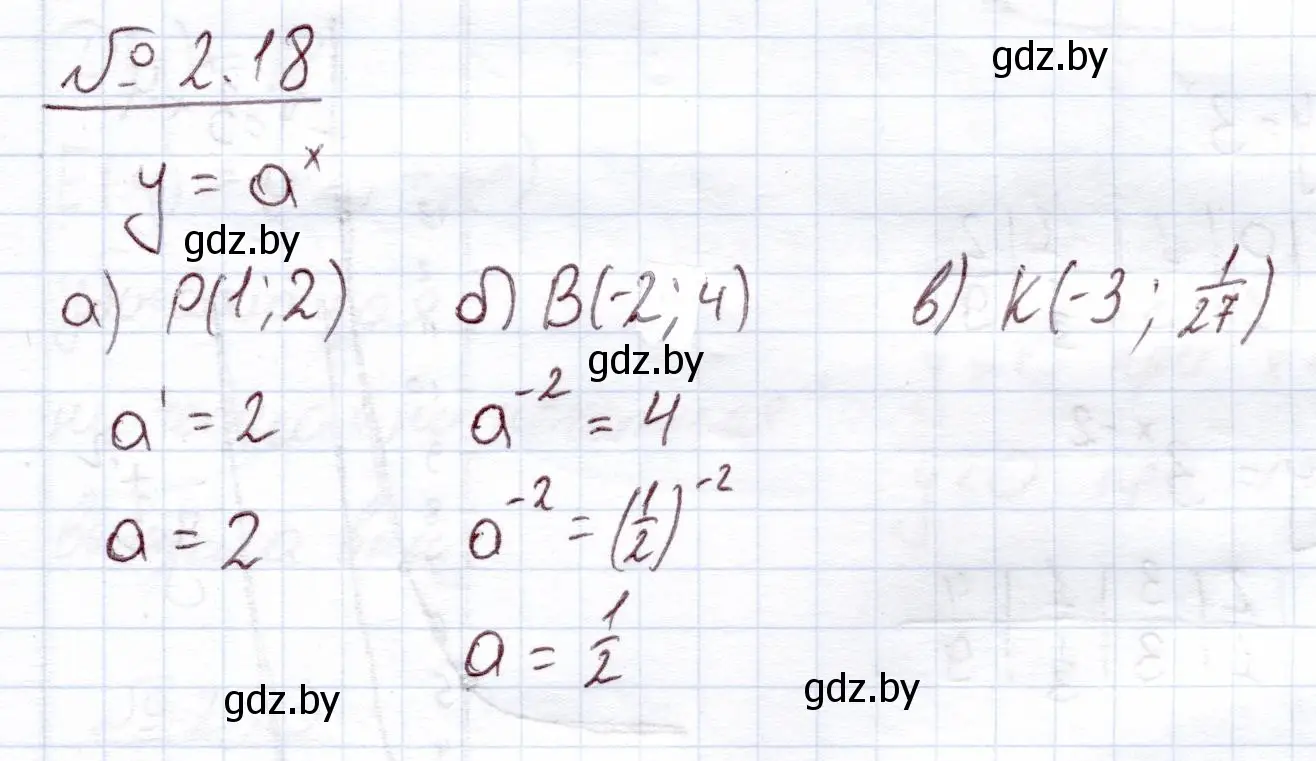 № 2.18
gdz.by
y = a^x
gdz.by
а) P(1; 2) б) B(-2; 4) в) K(-3; 1/27)
gdz.by
a^1 = 2 a^-2 = 4
a = 2 a^-2 = (1/2)^-2
a = 1/2
gdz.by gdz.by